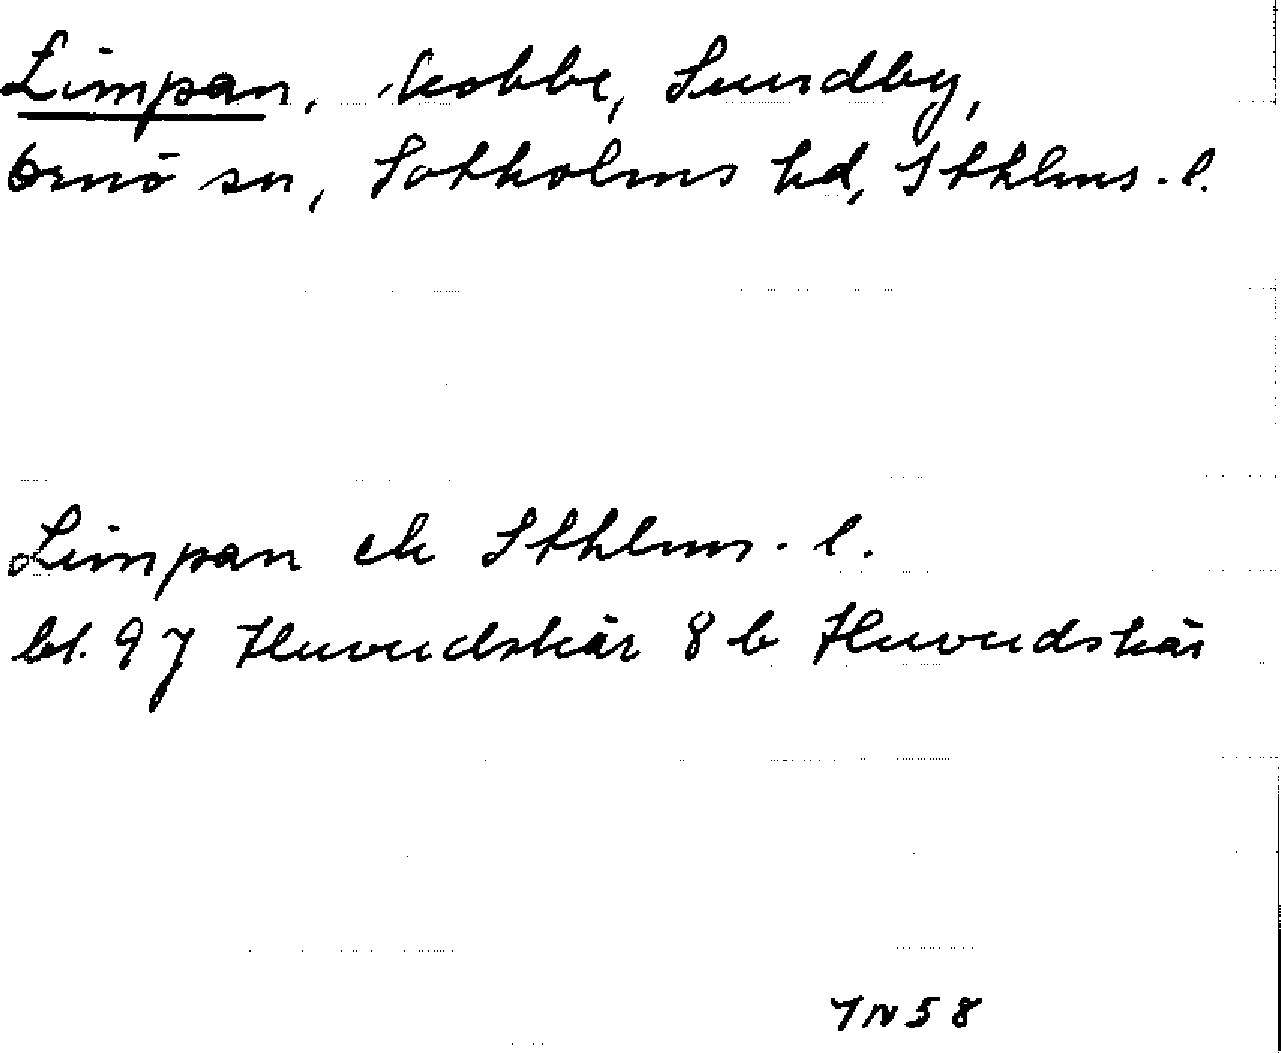 Limpan, kobbe, Sundby,
Ornö sn, Sotholms hd, Sthlms. l.
Limpan ek Sthlms. l.
bl. 97 Huvudskär 8 b Huvudskär
IN 58